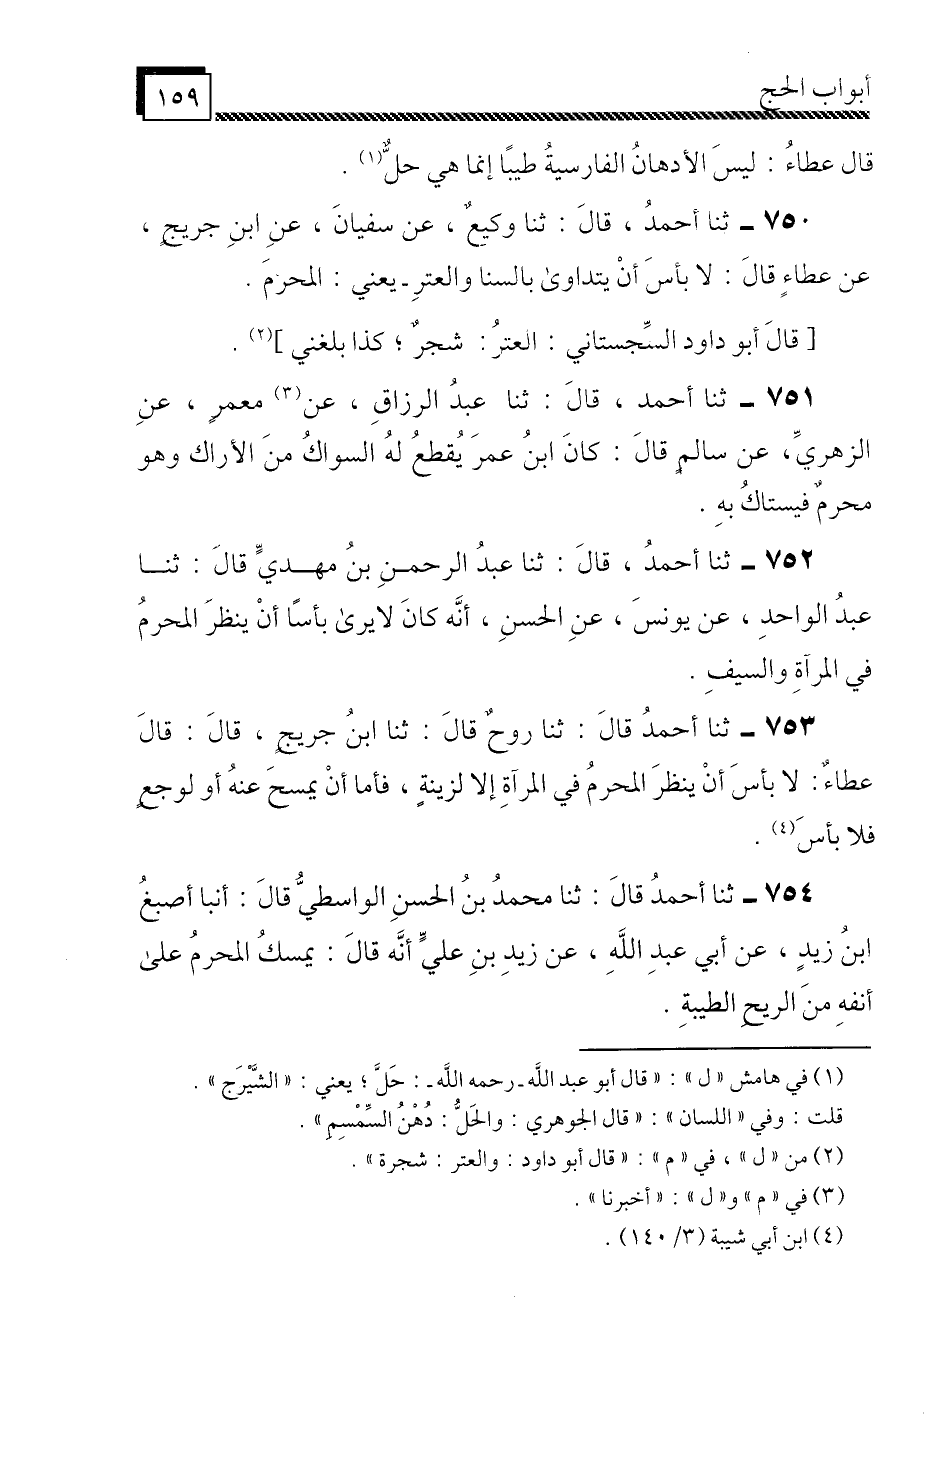 أبواب الحج
١٥٩
قال عطاءُ : ليسَ الأدهانُ الفارسيةُ طيبًا إنما هي حلٌّ(١) .
٧٥٠ ـ ثنا أحمدُ ، قالَ : ثنا وكيعٌ ، عن سفيانَ ، عنِ ابنِ جريجٍ ،
عن عطاءٍ قالَ : لا بأسَ أنْ يتداوىٰ بالسنا والعترِ ـ يعني : المحرمَ .
[ قالَ أبو داود السِّجستاني : العترُ : شجرٌ ؛ كذا بلغني ](٢) .
٧٥١ ـ ثنا أحمد ، قالَ : ثنا عبدُ الرزاقِ ، عن(٣) معمرٍ ، عنِ
الزهريِّ، عن سالمٍ قالَ : كانَ ابنُ عمرَ يُقطعُ لهُ السواكُ منَ الأراك وهو
محرمٌ فيستاكُ بهِ .
٧٥٢ ـ ثنا أحمدُ ، قالَ : ثنا عبدُ الرحمـنِ بنُ مهـديٍّ قالَ : ثنـا
عبدُ الواحدِ ، عن يونسَ ، عنِ الحسنِ ، أنَّه كانَ لايرىٰ بأسًا أنْ ينظرَ المحرمُ
في المرآةِ والسيفِ .
٧٥٣ ـ ثنا أحمدُ قالَ : ثنا روحٌ قالَ : ثنا ابنُ جريجٍ ، قالَ : قالَ
عطاءٌ: لا بأسَ أنْ ينظرَ المحرمُ في المرآةِ إلا لزينةٍ ، فأما أنْ يمسحَ عنهُ أو لوجعٍ
فلا بأسَ(٤) .
٧٥٤ ـ ثنا أحمدُ قالَ : ثنا محمدُ بنُ الحسنِ الواسطيُّ قالَ : أنبا أصبغُ
ابنُ زيدٍ ، عن أبي عبدِ اللَّهِ ، عن زيدِ بنِ عليٍّ أنَّه قالَ : يمسكُ المحرمُ علىٰ
أنفهِ منَ الريحِ الطيبةِ .
(١) في هامش «ل» : «قال أبو عبد اللَّه ـ رحمه اللَّه ـ : حَلَّ ؛ يعني : «الشَّيْرَج» .
قلت : وفي «اللسان» : «قال الجوهري : والحَلُّ : دُهْنُ السِّمْسِمِ» .
(٢) من «ل» ، في «م» : «قال أبو داود : والعتر : شجرة» .
(٣) في «م» و«ل» : «أخبرنا» .
(٤) ابن أبي شيبة (٣/ ١٤٠) .